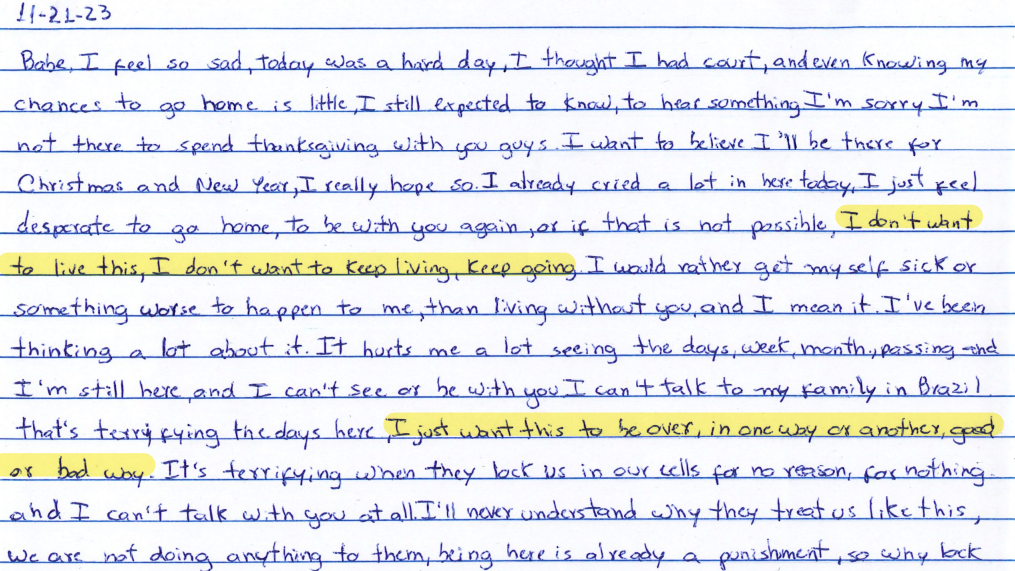 11-21-23
Babe, I feel so sad, today was a hard day, I thought I had court, and even knowing my
chances to go home is little, I still expected to know, to hear something I'm sorry I'm
not there to spend thanksgiving with you guys. I want to believe I'll be there for
Christmas and New Year, I really hope so. I already cried a lot in here today, I just feel
desperate to go home, to be with you again, or if that is not possible, I don't want
to live this, I don't want to keep living, keep going. I would rather get myself sick or
something worse to happen to me, than living without you, and I mean it. I've been
thinking a lot about it. It hurts me a lot seeing the days, week, month, passing and
I'm still here, and I can't see or be with you I can't talk to my family in Brazil
that's terryfying the days here, I just want this to be over, in one way or another, good
or bad way. It's terrifying when they lock us in our cells for no reason, for nothing
and I can't talk with you at all. I'll never understand why they treat us like this,
we are not doing anything to them, being here is already a punishment, so why lock